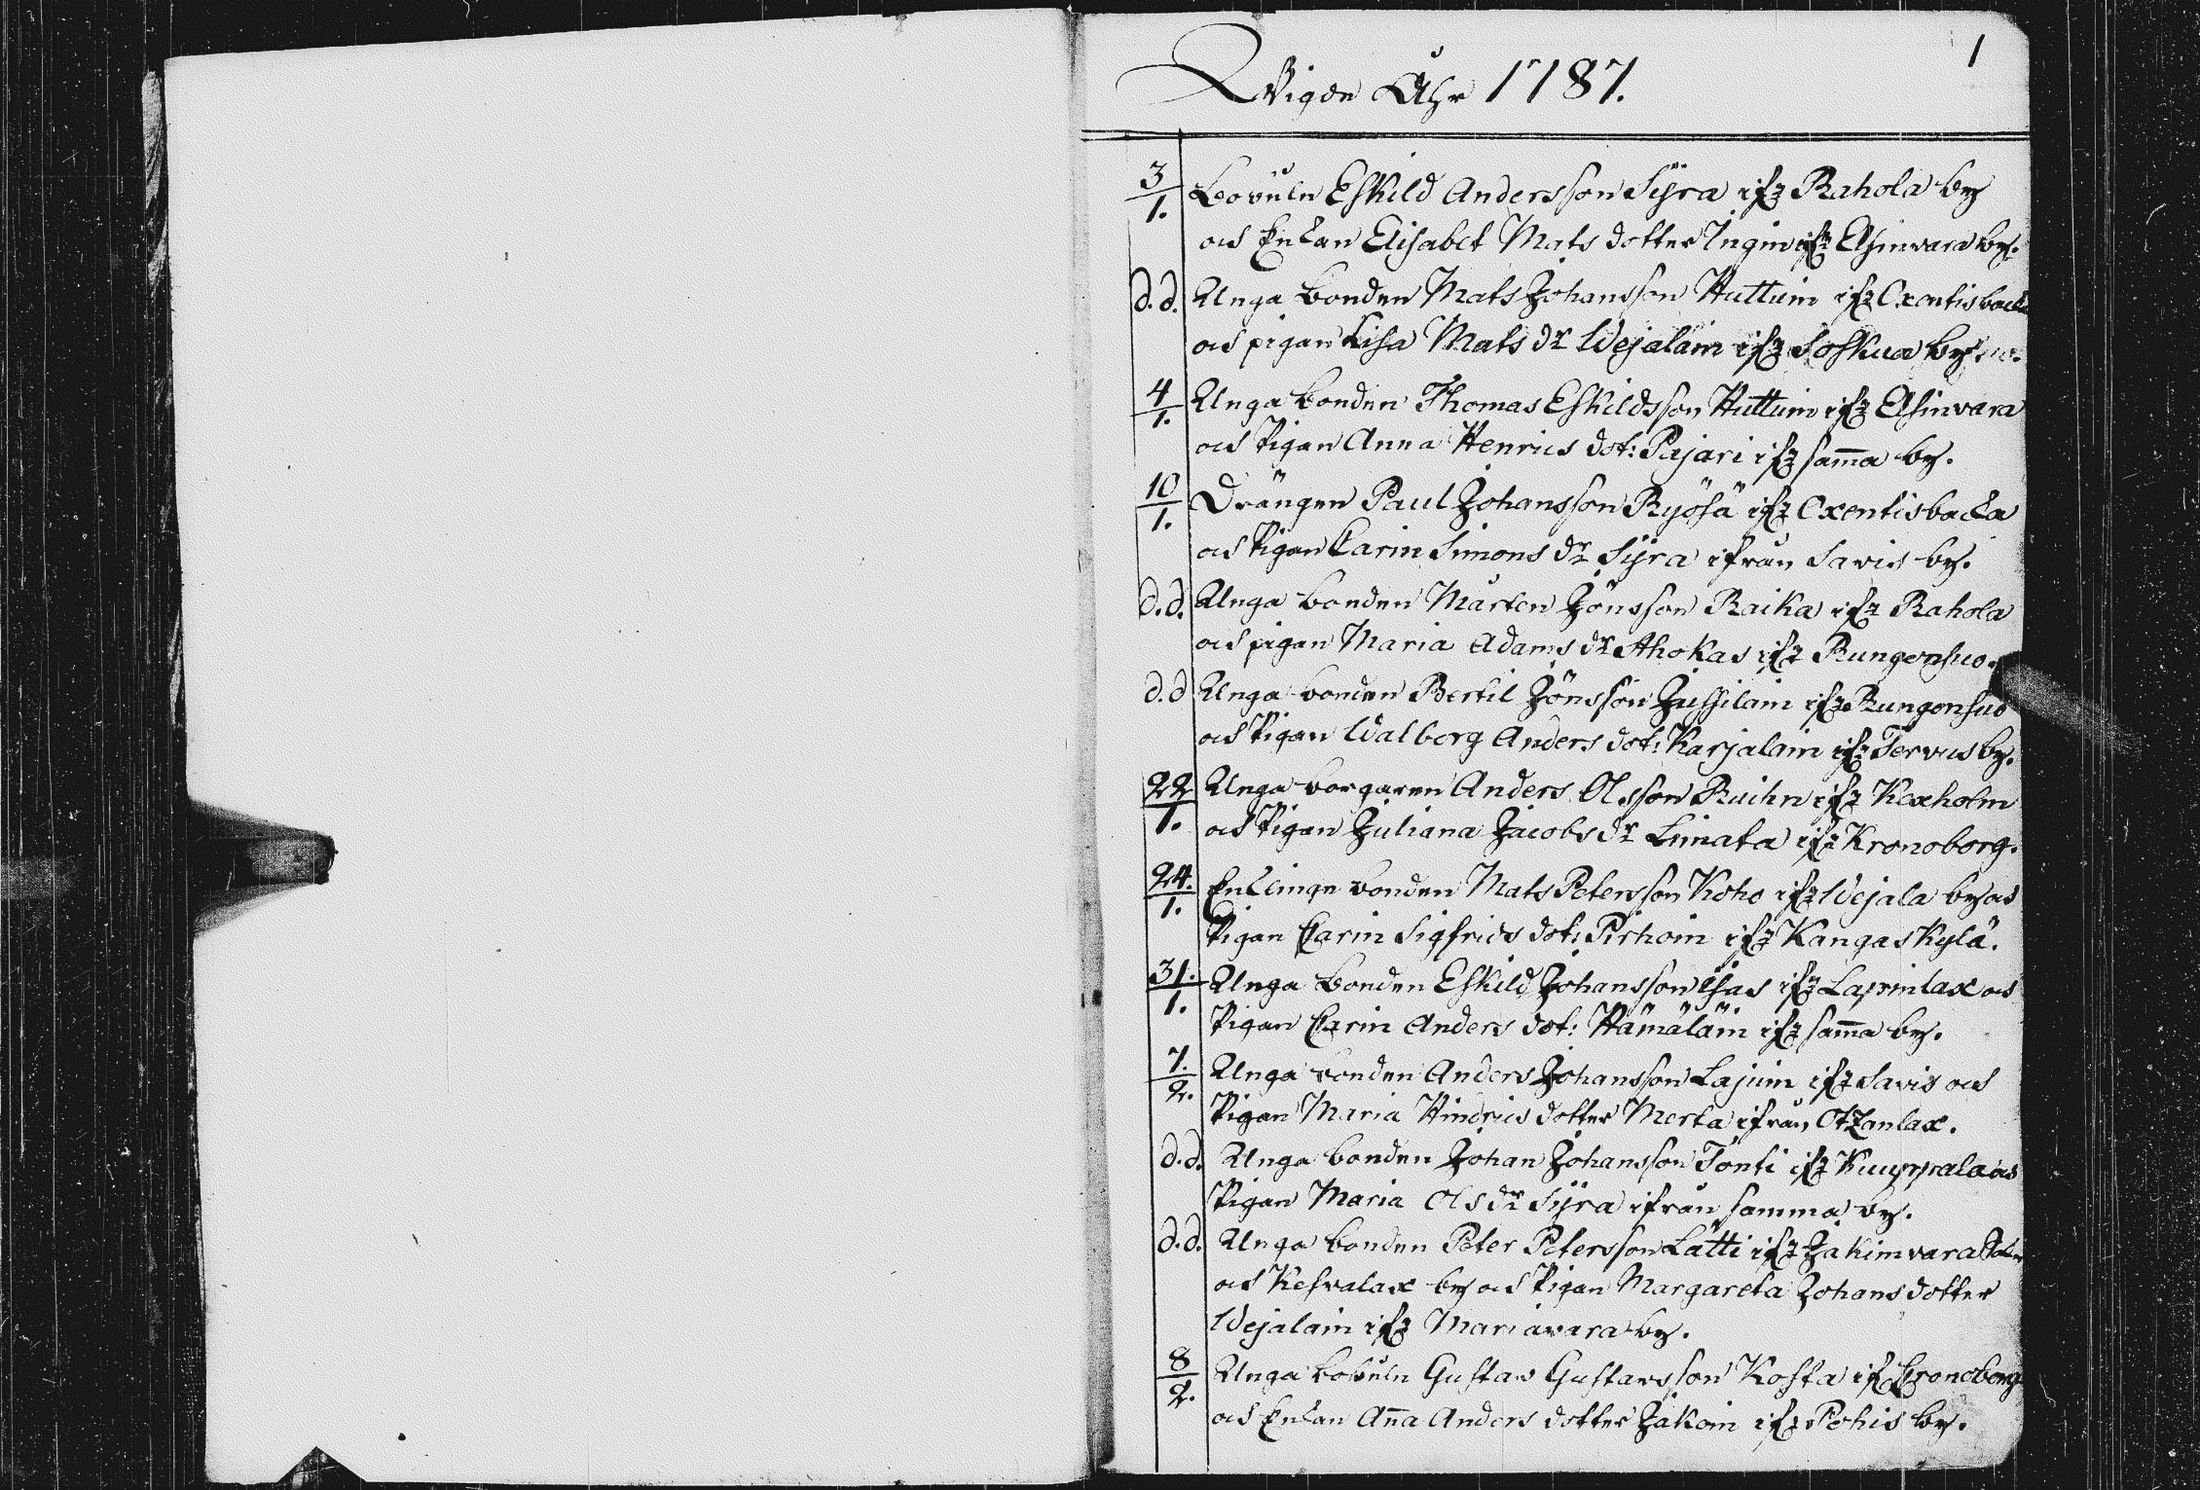 1
Wigde Åhr 1787.
3/1. Bobüln Eskild Andersson Sÿra ifr Rahola by
och Enkan Elisabet Mats dotter Ingin ifr Elsinvara by.
d.d. Unga bonden Mats Johansson Huttuin ifr Oxentisbacka
och pigan Lisa Mats dr Wejalain ifr Soskua by
4/1. Unga bonden Thomas Eskildsson Huttuin ifr Elsinvara
och Pigan Anna Henrics dot: Pajari ifr samma by.
10/1. Drängen Paul Johansson Ryösä ifr Oxentisbacka
och Pigan Carin Simons dr Sÿra ifrån Savis by.
d.d. Unga bonden Mårten Jönsson Raika ifr Rahola
och pigan Maria Adams dr Ahokas ifr Rungonsuo.
d.d Unga bonden Bertil Jönsson Jussilain ifr Rungonsuo
och Pigan Walborg Anders dot: Karjalain ifr Tervus by.
22/1. Unga borgaren Anders Olsson Ruihn ifr Kexholm
och Pigan Juliana Jacobs dr Limata ifr Kronoborg.
24./1. Enklinge bonden Mats Petersson Koho ifr Wejala by och
Pigan Carin Sigfrids dot: Pirhoin ifr Kangaskylä.
31./1. Unga bonden Eskild Johansson Isas ifr Lapinlax och
Pigan Carin Anders dot: Hämäläin ifr samma by.
7./2. Unga bonden Anders Johansson Lajuin ifr Savis och
Pigan Maria Hindrics dotter Merta ifrån Otzanlax.
d.d. Unga bonden Johan Johansson Tonti ifr Kuuppala och
Pigan Maria Ols dr Sÿra ifrån samma by.
d.d. Unga bonden Peter Petersson Lätti ifr Jakimvara
och Kesvalax by och Pigan Margareta Johans dotter
Wejalain ifr Mariavara by.
8/2. Unga bobüln Gustav Gustavsson Kosta ifr Cronoborg
och Enkan Anna Anders dotter Jakoin ifr Pohis by.